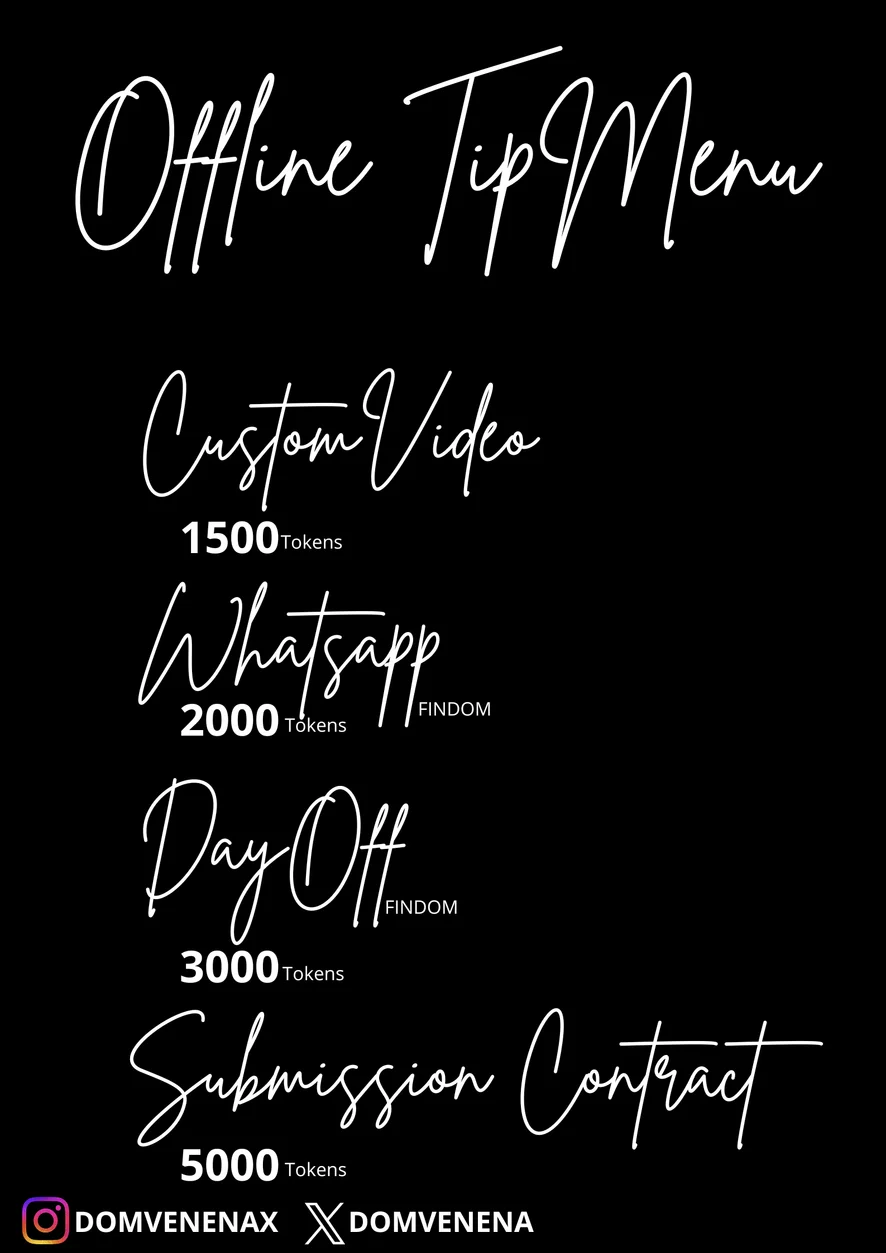 Offline Tip Menu
Custom Video
1500 Tokens
Whatsapp
2000 Tokens FINDOM
Day Off
FINDOM
3000 Tokens
Submission Contract
5000 Tokens
DOMVENENAX DOMVENENA